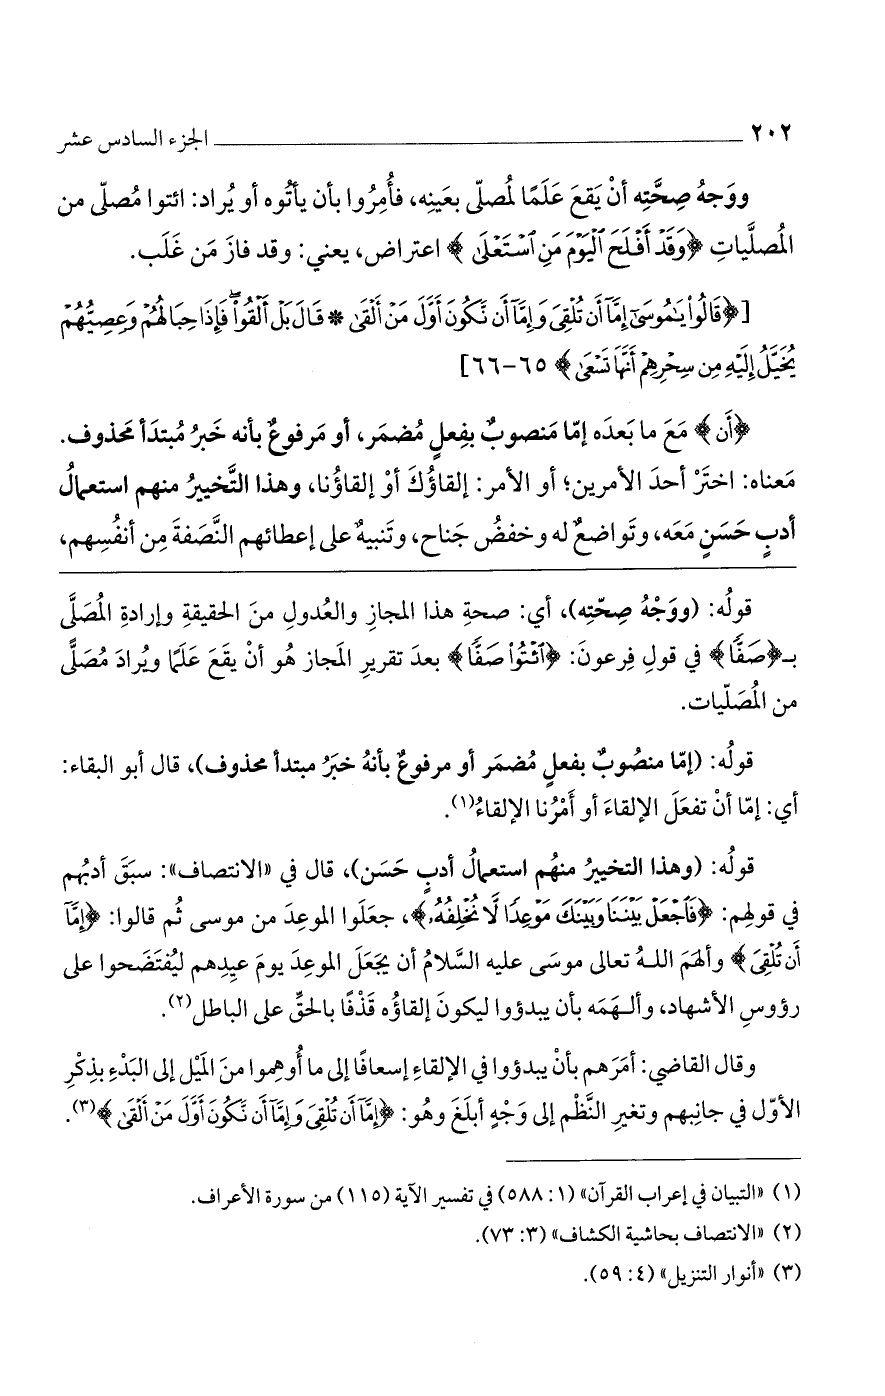 ٢٠٢ الجزء السادس عشر
ووَجهُ صِحَّتِه أنْ يَقعَ عَلَمًا لمُصلّى بعَينِه، فأُمِرُوا بأن يأتُوه أو يُراد: ائتوا مُصلّى من
المُصلَّياتِ ﴿وَقَدْ أَفْلَحَ ٱلْيَوْمَ مَنِ ٱسْتَعْلَىٰ﴾ اعتراض، يعني: وقد فازَ مَن غَلَب.
[﴿قَالُوا۟ يَٰمُوسَىٰٓ إِمَّآ أَن تُلْقِىَ وَإِمَّآ أَن نَّكُونَ أَوَّلَ مَنْ أَلْقَىٰ * قَالَ بَلْ أَلْقُوا۟ۖ فَإِذَا حِبَالُهُمْ وَعِصِيُّهُمْ
يُخَيَّلُ إِلَيْهِ مِن سِحْرِهِمْ أَنَّهَا تَسْعَىٰ﴾ ٦٥-٦٦]
﴿أَن﴾ مَعَ ما بَعدَه إمّا مَنصوبٌ بفِعلٍ مُضمَر، أو مَرفوعٌ بأنه خَبرُ مُبتدَأ مَحذوف.
مَعناه: اختَرْ أحدَ الأمرين؛ أو الأمر: إلقاؤُكَ أوْ إلقاؤُنا، وهذا التَّخييرُ منهم استعمالُ
أدبٍ حَسَنٍ مَعَه، وتَواضعٌ له وخفضُ جَناح، وتَنبيهٌ على إعطائهم النَّصَفةَ مِن أنفُسِهم،
قولُه: (ووَجْهُ صِحّتِه)، أي: صحةِ هذا المجازِ والعُدولِ منَ الحقيقةِ وإرادةِ المُصَلَّى
بـ﴿صَفًّا﴾ في قولِ فِرعونَ: ﴿ٱئْتُوا۟ صَفًّا﴾ بعدَ تقريرِ المَجاز هُو أنْ يقَعَ عَلَمًا ويُرادَ مُصَلًّى
من المُصَلّيات.
قولُه: (إمّا منصُوبٌ بفعلٍ مُضمَر أو مرفوعٌ بأنهُ خبَرُ مبتدأ محذوف)، قال أبو البقاء:
أي: إمّا أنْ تفعَلَ الإلقاءَ أو أمْرُنا الإلقاءُ(١).
قولُه: (وهذا التخييرُ منهُم استعمالُ أدبٍ حَسَن)، قال في «الانتصاف»: سبَقَ أدبُهم
في قولهم: ﴿فَٱجْعَلْ بَيْنَنَا وَبَيْنَكَ مَوْعِدًا لَّا نُخْلِفُهُۥ﴾، جعَلَوا الموعِدَ من موسى ثُم قالوا: ﴿إِمَّآ
أَن تُلْقِىَ﴾ وألهَمَ اللهُ تعالى موسَى عليه السَّلامُ أن يَجعَلَ الموعِدَ يومَ عيدِهم ليُفتَضَحوا على
رؤوسِ الأشهاد، وألهَمَه بأن يبدؤوا ليكونَ إلقاؤُه قَذْفًا بالحقِّ على الباطل(٢).
وقال القاضي: أمَرَهم بأنْ يبدؤوا في الإلقاءِ إسعافًا إلى ما أُوهِموا منَ المَيْل إلى البَدْءِ بذِكْرِ
الأوّل في جانبِهم وتغيرِ النَّظْم إلى وَجْهٍ أبلَغَ وهُو: ﴿إِمَّآ أَن تُلْقِىَ وَإِمَّآ أَن نَّكُونَ أَوَّلَ مَنْ أَلْقَىٰ﴾(٣).
(١) «التبيان في إعراب القرآن» (١: ٥٨٨) في تفسير الآية (١١٥) من سورة الأعراف.
(٢) «الانتصاف بحاشية الكشاف» (٣: ٧٣).
(٣) «أنوار التنزيل» (٤: ٥٩).